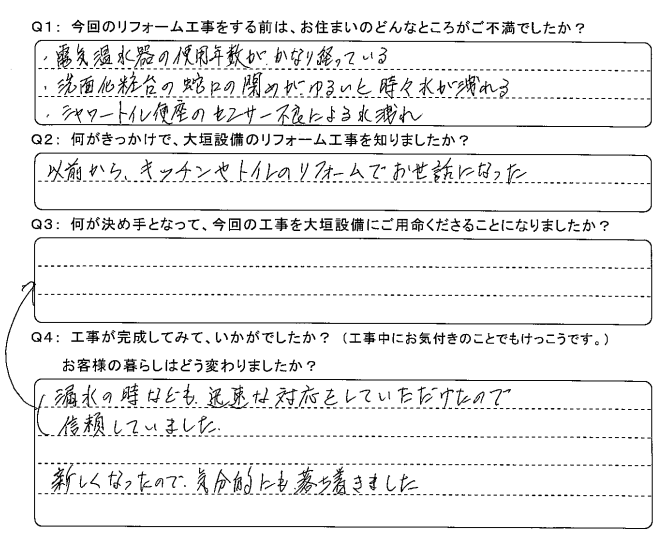 Q1: 今回のリフォーム工事をする前は、お住まいのどんなところがご不満でしたか?
・電気温水器の使用年数がかなり経っている
・洗面化粧台の蛇口の閉めがゆるいと時々水が洩れる
・シャワートイレ便座のセンサー不良による水洩れ
Q2: 何がきっかけで、大垣設備のリフォーム工事を知りましたか?
以前から、キッチンやトイレのリフォームでお世話になった
Q3: 何が決め手となって、今回の工事を大垣設備にご用命くださることになりましたか?
Q4: 工事が完成してみて、いかがでしたか?(工事中にお気付きのことでもけっこうです。)
お客様の暮らしはどう変わりましたか?
漏水の時なども、迅速な対応をしていただけたので
信頼していました.
新しくなったので、気分的にも落ち着きました